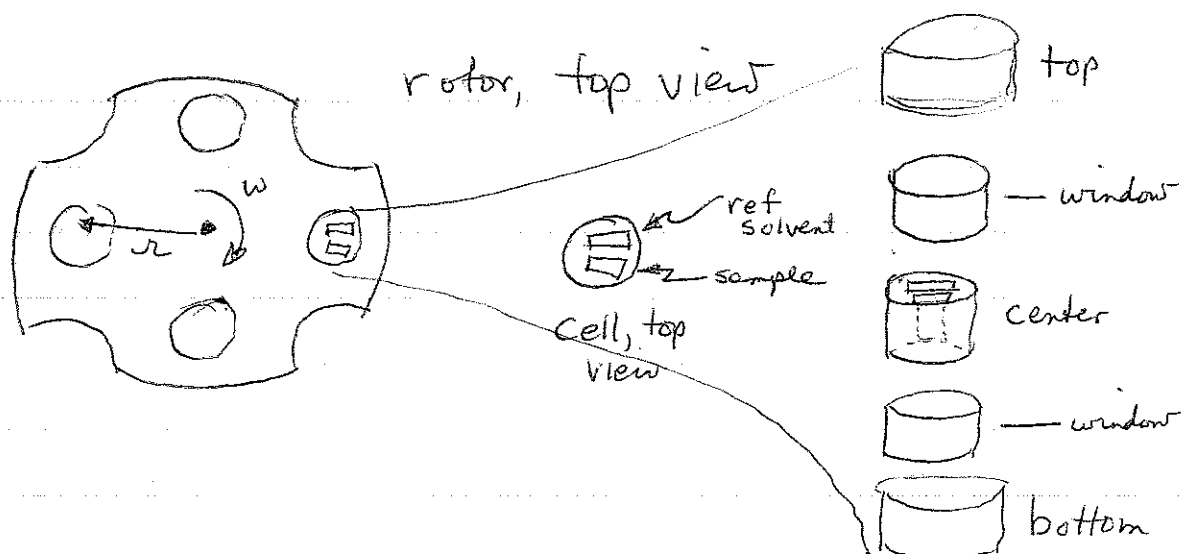 rotor, top view
top
ω
r
ref
solvent
sample
cell, top
view
window
center
window
bottom